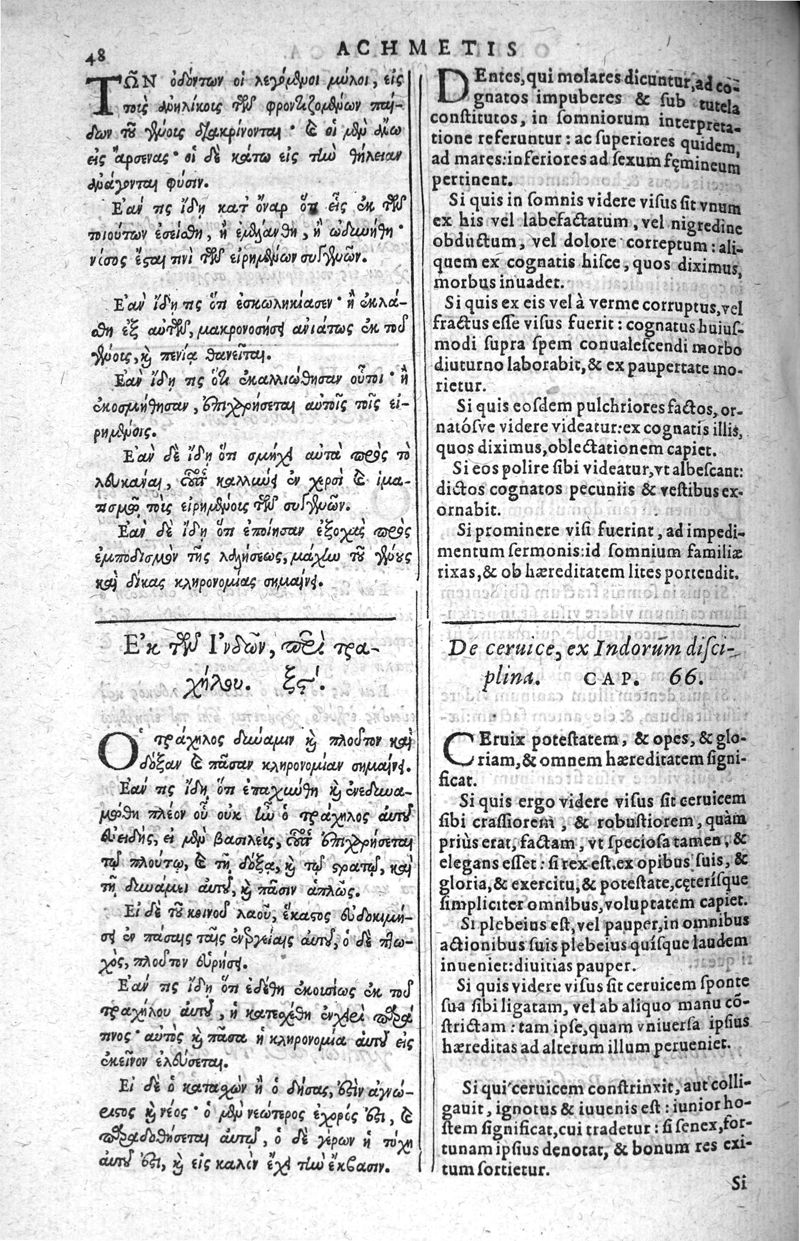 48
ACHMETIS
ΤΩΝ ὀδόντων οἱ λεγόμενοι μύλοι, εἰς
τοὺς ἀφήλικας τῶν φροντιζομένων παί-
δων τοῦ γένους διακρίνονται· καὶ οἱ μὲν ἄνω
εἰς ἄρσενας· οἱ δὲ κάτω εἰς τὴν θήλειαν
ἀνάγονται φύσιν.
Ἐάν τις ἴδῃ κατ' ὄναρ ὅτι εἷς ἐκ τῶν
τοιούτων ἐσείσθη, ἢ ἐμελάνθη, ἢ ὠδυνήθη·
νόσος ἔσται τινὶ τῶν εἰρημένων συγγενῶν.
Ἐὰν ἴδῃ τις ὅτι ἐσκωληκίασεν· ἢ ἐκλά-
σθη ἐξ αὐτῶν, μακρονοσήσει ἀνιάτως ἐκ τοῦ
γένους, καὶ πενίᾳ θανεῖται.
Ἐὰν ἴδῃ τις ὅτι ἐκαλλιώθησαν οὗτοι· ἢ
ἐκοσμήθησαν, ἐπιχαρήσεται αὐτοῖς τοῖς εἰ-
ρημένοις.
Ἐὰν δὲ ἴδῃ ὅτι σμήχει αὐτὰ πρὸς τὸ
λευκᾶναι, οὗτος καλλιώσει ἐν χρυσῷ καὶ ἱμα-
τισμῷ τοὺς εἰρημένους τῶν συγγενῶν.
Ἐὰν δὲ ἴδῃ ὅτι ἐποίησαν ἐξοχὰς πρὸς
ἐμποδισμὸν τῆς λαλήσεως, μάχην τοῦ γένους
καὶ δίκας κληρονομίας σημαίνει.
Ἐκ τῶν Ἰνδῶν, περὶ τρα-
χήλου. ξϛʹ.
Ὁ τράχηλος δύναμιν καὶ πλοῦτον καὶ
δόξαν καὶ πᾶσαν κληρονομίαν σημαίνει.
Ἐάν τις ἴδῃ ὅτι ἐπαχύνθη καὶ ἐνεδυνα-
μώθη πλέον οὗ οὐκ ἦν ὁ τράχηλος αὐτοῦ
εὐειδής, εἰ μὲν βασιλεύς, οὗτος ἐπιχαρήσεται
τῷ πλούτῳ, καὶ τῇ δόξᾳ, καὶ τῷ στρατῷ, καὶ
τῇ δυνάμει αὐτοῦ, καὶ πᾶσιν ἁπλῶς.
Εἰ δὲ τοῦ κοινοῦ λαοῦ, ἕκαστος εὐδοκιμή-
σει ἐν πάσαις ταῖς ἐνεργείαις αὐτοῦ, ὁ δὲ πτω-
χός, πλοῦτον εὑρήσει.
Ἐάν τις ἴδῃ ὅτι ἐδέθη ἑκουσίως ἐκ τοῦ
τραχήλου αὐτοῦ, ἢ κατεσχέθη ἐν χειρὶ παρά
τινος· αὐτὸς καὶ πᾶσα ἡ κληρονομία αὐτοῦ εἰς
ἐκεῖνον ἐλεύσεται.
Εἰ δὲ ὁ κατασχὼν ἢ ὁ δήσας, ἔστιν ἀγνώ-
ριστος καὶ νέος· ὁ μὲν νεώτερος ἐχθρός ἐστι, καὶ
παραδοθήσεται αὐτῷ, ὁ δὲ γέρων ἡ τύχη
αὐτοῦ ἐστι, καὶ εἰς καλὸν ἔχει τὴν ἔκβασιν.
DEntes, qui molares dicuntur, ad co-
gnatos impuberes & sub tutela
constitutos, in somniorum interpreta-
tione referuntur: ac superiores quidem,
ad mares: inferiores ad sexum fęmineum
pertinent.
Si quis in somnis videre visus sit vnum
ex his vel labefactatum, vel nigredine
obductum, vel dolore correptum: ali-
quem ex cognatis hisce, quos diximus,
morbus inuadet.
Si quis ex eis vel à verme corruptus, vel
fractus esse visus fuerit: cognatus huius-
modi supra spem conualescendi morbo
diuturno laborabit, & ex paupertate mo-
rietur.
Si quis eosdem pulchriores factos, or-
natósve videre videatur: ex cognatis illis,
quos diximus, oblectationem capiet.
Si eos polire sibi videatur, vt albescant:
dictos cognatos pecuniis & vestibus ex-
ornabit.
Si prominere visi fuerint, ad impedi-
mentum sermonis: id somnium familiæ
rixas, & ob hæreditatem lites portendit.
De ceruice, ex Indorum disci-
plina. CAP. 66.
CEruix potestatem, & opes, & glo-
riam, & omnem hæreditatem signi-
ficat.
Si quis ergo videre visus sit ceruicem
sibi crassiorem, & robustiorem, quàm
priùs erat, factam, vt speciosa tamen, &
elegans esset: si rex est, ex opibus suis, &
gloria, & exercitu, & potestate, cęterísque
simpliciter omnibus, voluptatem capiet.
Si plebeius est, vel pauper, in omnibus
actionibus suis plebeius quisque laudem
inueniet: diuitias pauper.
Si quis videre visus sit ceruicem sponte
sua sibi ligatam, vel ab aliquo manu cō-
strictam: tam ipse, quam vniuersa ipsius
hæreditas ad alterum illum perueniet.
Si qui ceruicem constrinxit, aut colli-
gauit, ignotus & iuuenis est: iunior ho-
stem significat, cui tradetur: si senex, for-
tunam ipsius denotat, & bonum res exi-
tum sortietur.
Si